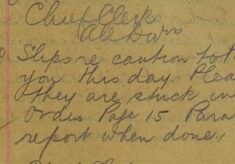 Chief Clerk
All Divns
Slips re caution for
you this day. Plea
they are stuck in
Ordrs Page 15 Para
report when done.